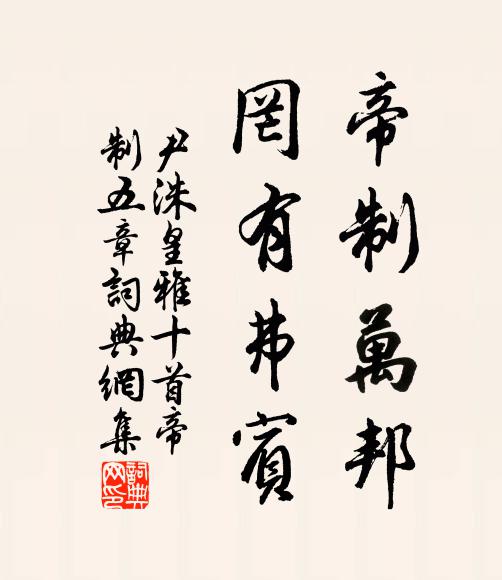 帝制萬邦
罔有弗賓
尹洙皇雅十首帝
制五章詞典網集
詞典
网印